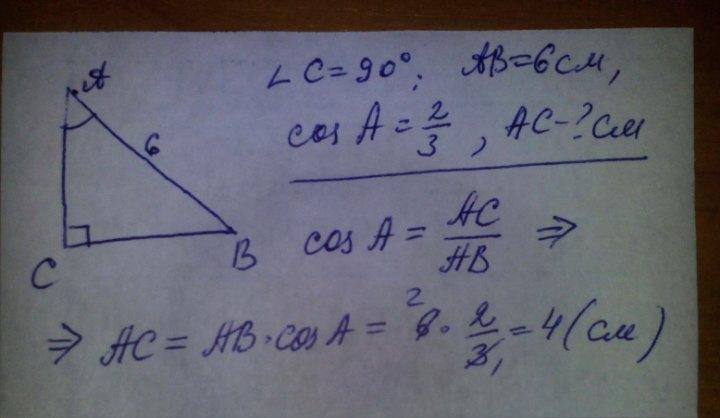 A
6
C
B
∠C=90°; AB=6см,
cos A = 2/3 , AC-? см
cos A = AC/AB ⇒
⇒ AC = AB·cos A = 6² · 2/3₁ = 4 (см)